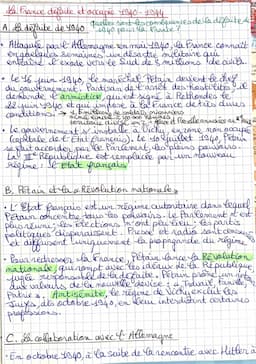 La France défaite et occupée 1940-1944
Quelles sont les conséquences de la défaite de
A. La défaite de 1940
1940 pour la France ?
• Attaquée par l'Allemagne en mai 1940, la France connaît
en quelques semaines, un désastre militaire qui
entraîne l'exode vers le Sud de 8 millions de civils.
• Le 16 juin 1940, le maréchal Pétain devient le chef
du gouvernement. Partisan de l'arrêt des hostilités, il
demande l'armistice qui est signé à Rethondes le
22 juin 1940 et qui impose à la France de très dures
conditions :
• Le gouvernement s'installe à Vichy, en zone non occupée
(capitale de l'État français). Le 10 juillet 1940, Pétain
se fait accorder, par le Parlement, les pleins pouvoirs.
La IIIe République est remplacée par un nouveau
régime : l'État français
B. Pétain et la « Révolution nationale »
• L'État français est un régime autoritaire dans lequel
Pétain concentre tous les pouvoirs. Le Parlement n'est
plus réuni, les élections n'ont plus lieu ; les partis
politiques disparaissent. Presse et radio sont censurées
et diffusent uniquement la propagande du régime.
• Pour redresser la France, Pétain lance la Révolution
nationale qui rompt avec les idéaux de la République,
jugée responsable de la défaite. Pétain prône un retour
aux valeurs de la nouvelle devise : « Travail, Famille,
Patrie ». Antisémite, le régime de Vichy exclut les
Juifs, dès octobre 1940, en leur interdisant certaines
professions.
C. La collaboration avec l'Allemagne
• En octobre 1940, à la suite de la rencontre avec Hitler à